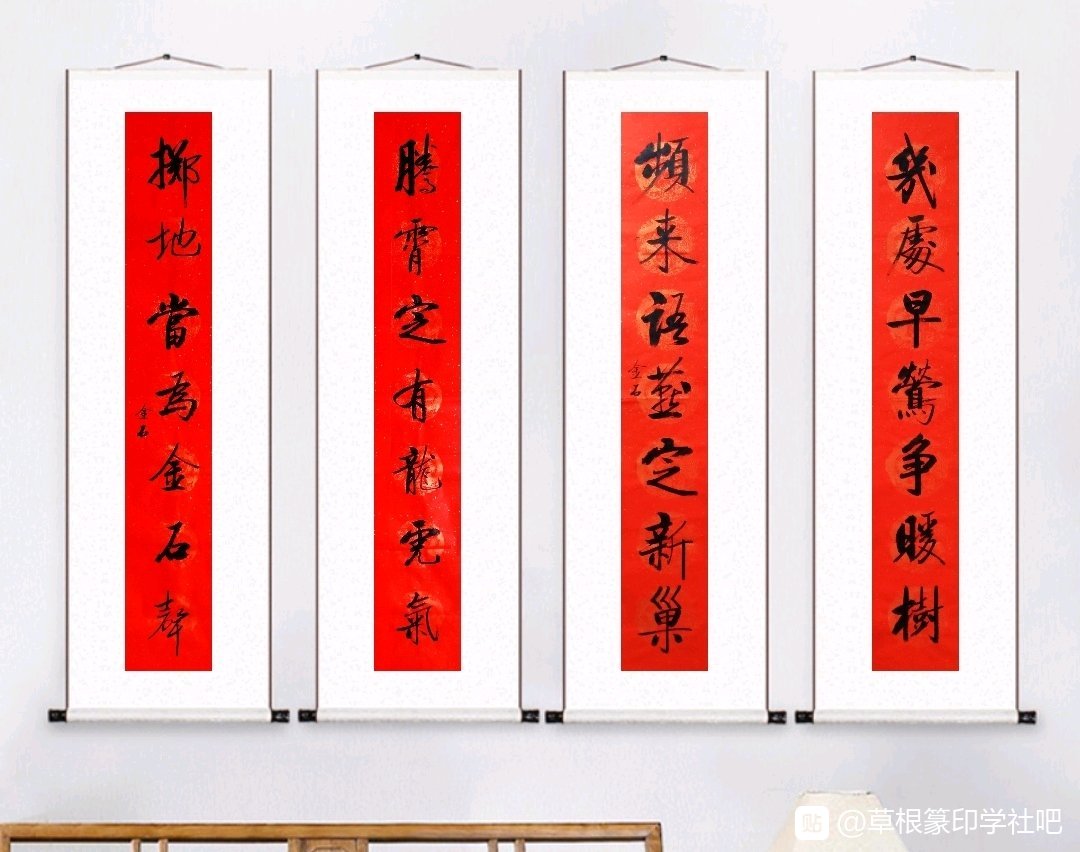 幾處早鶯争暖樹
頻来語燕定新巢
金石
騰霄定有龍虎氣
擲地當為金石聲
金石
貼 @草根篆印学社吧